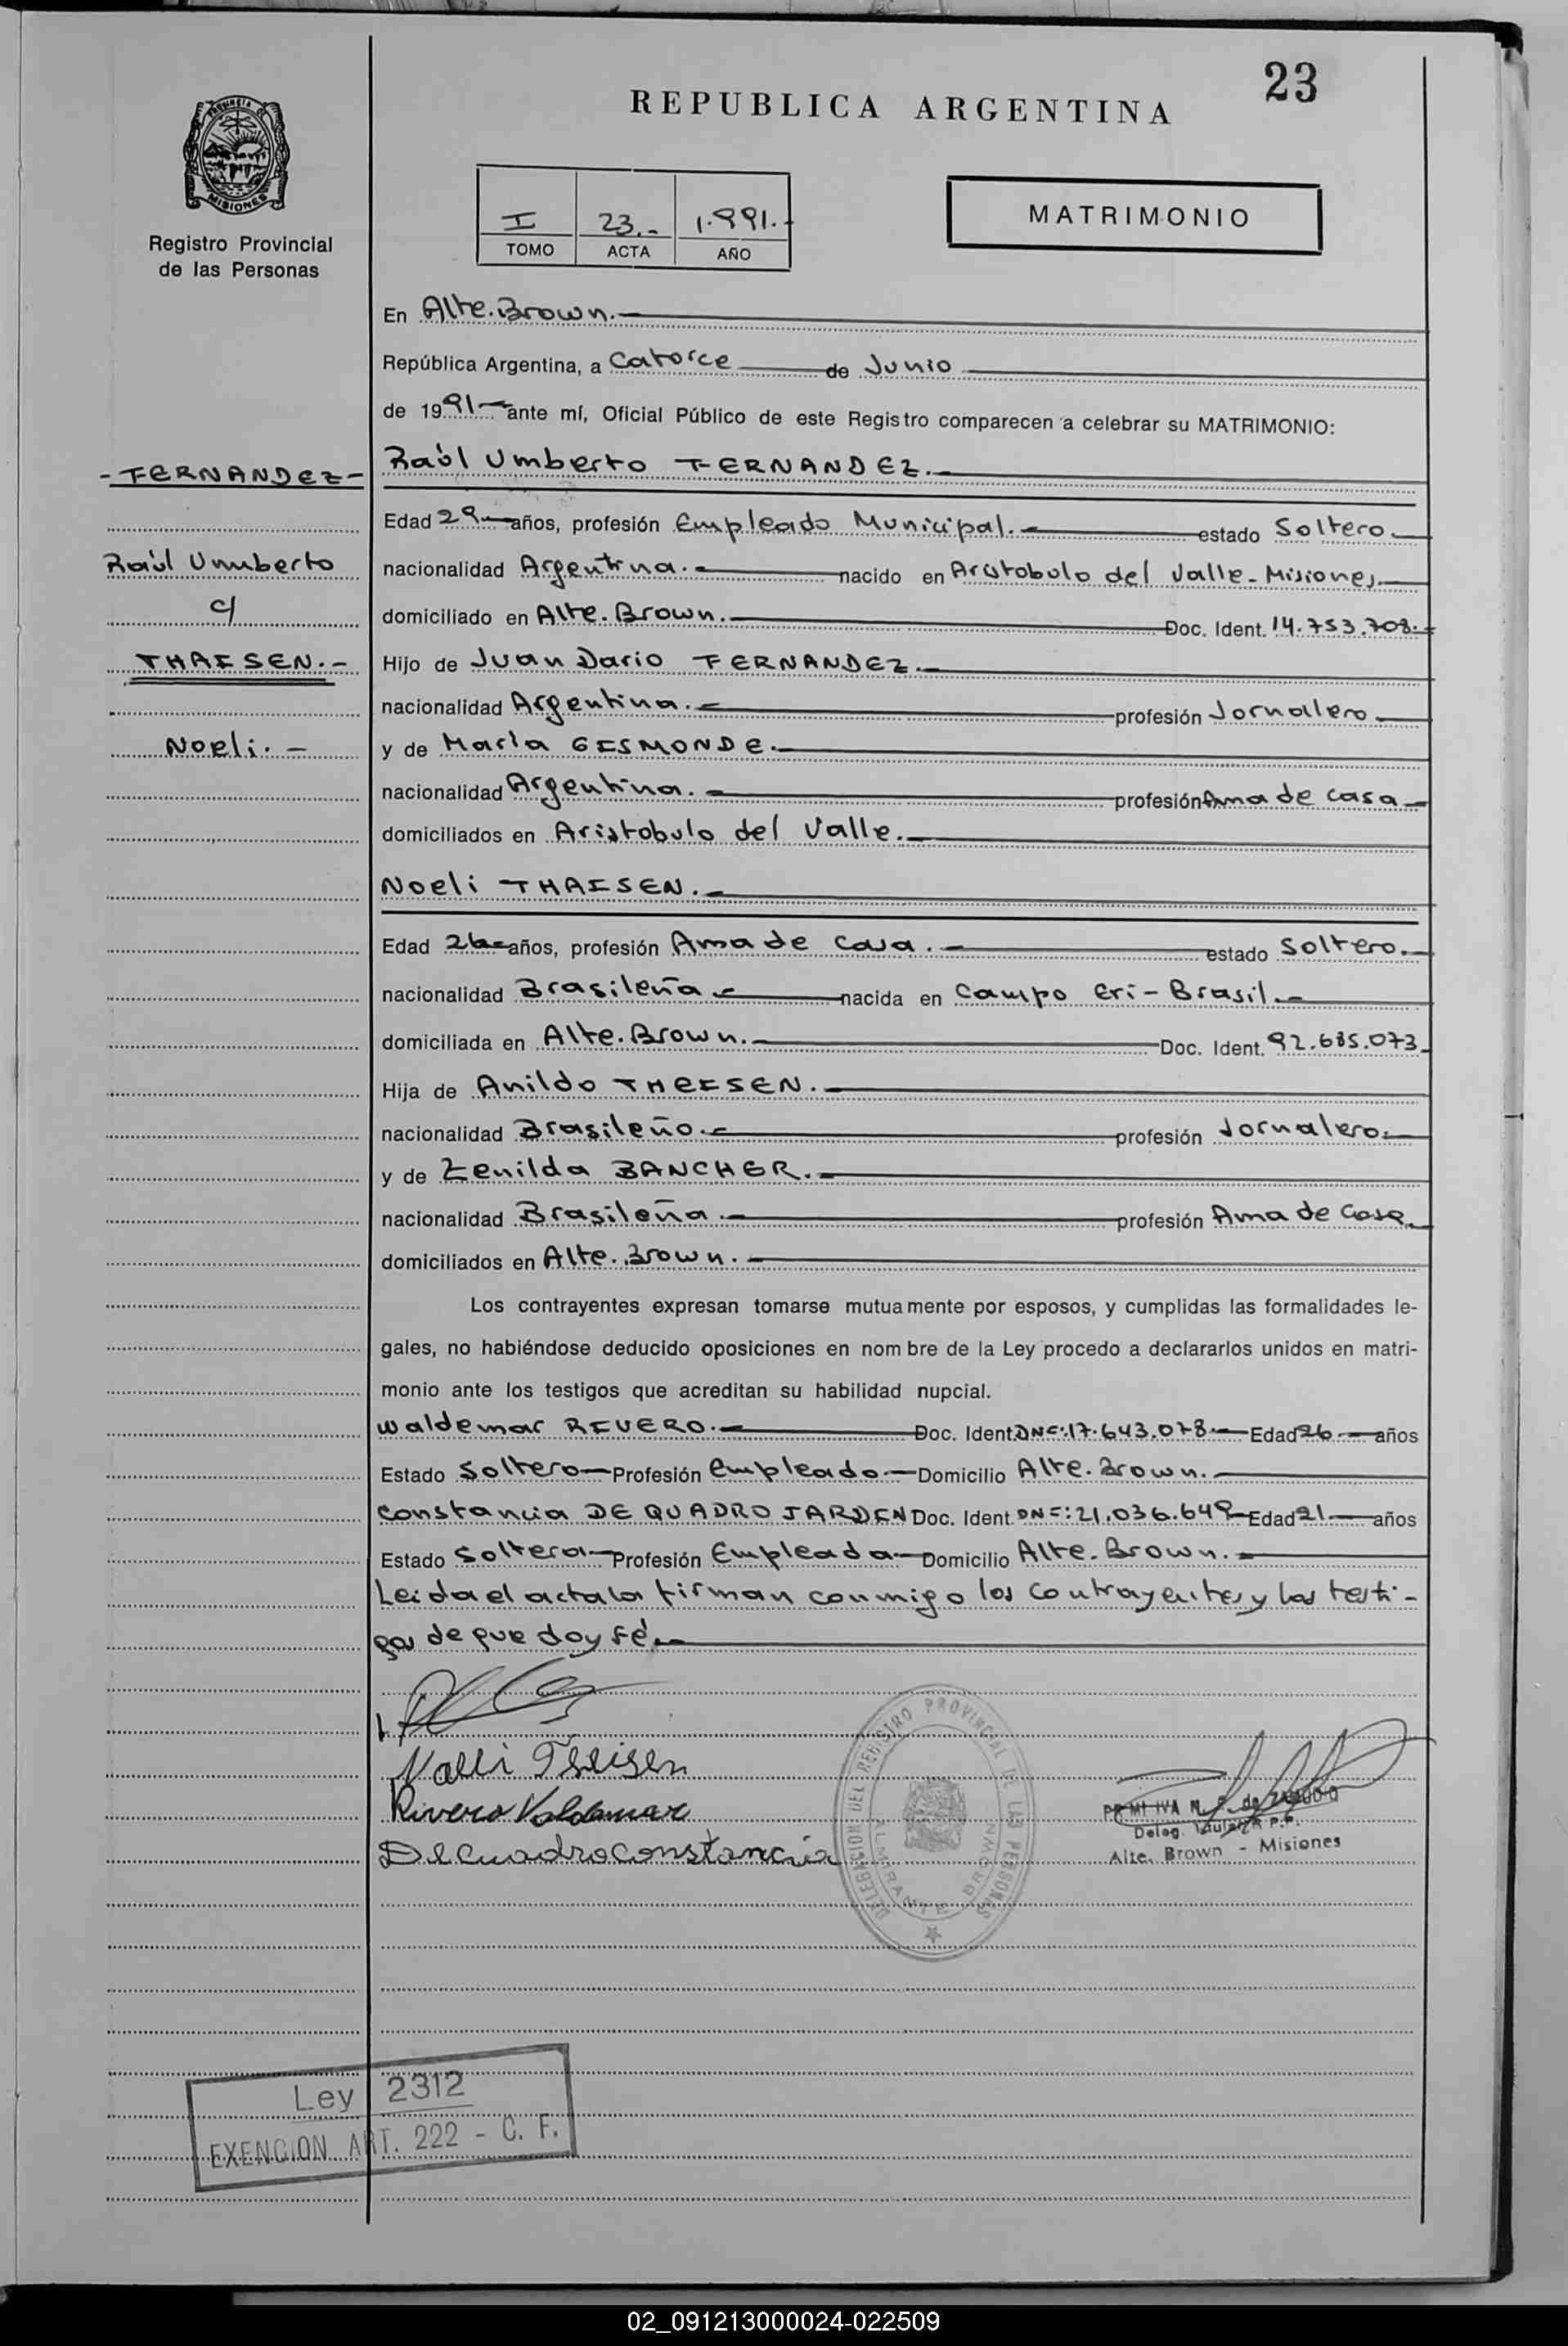 23
REPUBLICA ARGENTINA
PROVINCIA DE
MISIONES
Registro Provincial
de las Personas
I 23.- 1.991.-
TOMO ACTA AÑO
MATRIMONIO
En Alte. Brown.
República Argentina, a Catorce de Junio
de 1991 ante mí, Oficial Público de este Registro comparecen a celebrar su MATRIMONIO:
- FERNANDEZ -
Raúl Umberto
c/
THAISEN.-
Noeli.-
Raúl Umberto FERNANDEZ.
Edad 29 años, profesión Empleado Municipal. estado Soltero.
nacionalidad Argentina. nacido en Aristobulo del Valle - Misiones
domiciliado en Alte. Brown. Doc. Ident. 14.753.708.
Hijo de Juan Dario FERNANDEZ.
nacionalidad Argentina. profesión Jornalero
y de María GISMONDE.
nacionalidad Argentina. profesión Ama de casa
domiciliados en Aristobulo del Valle.
Noeli THAISEN.
Edad 26 años, profesión Ama de casa. estado Soltero.
nacionalidad Brasileña nacida en Campo Eri - Brasil.
domiciliada en Alte. Brown. Doc. Ident. 92.685.073
Hija de Anildo THEISEN.
nacionalidad Brasileño. profesión Jornalero.
y de Zenilda BANCHER.
nacionalidad Brasileña. profesión Ama de Casa
domiciliados en Alte. Brown.
Los contrayentes expresan tomarse mutuamente por esposos, y cumplidas las formalidades le-
gales, no habiéndose deducido oposiciones en nombre de la Ley procedo a declararlos unidos en matri-
monio ante los testigos que acreditan su habilidad nupcial.
Waldemar RIVERO. Doc. Ident. DNI: 17.643.078 Edad 26 años
Estado Soltero Profesión Empleado Domicilio Alte. Brown.
Constancia DE QUADRO JARDIN Doc. Ident. DNI: 21.036.649 Edad 21 años
Estado Soltera Profesión Empleada Domicilio Alte. Brown.
Leida el acta la firman conmigo los contrayentes y los testi-
gos de que doy fé.
Noeli Theisen
Rivero Valdemar
De cuadro constancia
DELEGACION DEL REGISTRO PROVINCIAL DE LAS PERSONAS
ALMIRANTE BROWN
Alte. Brown - Misiones
Ley 2312
EXENCION ART. 222 - C. F.
02_091213000024-022509